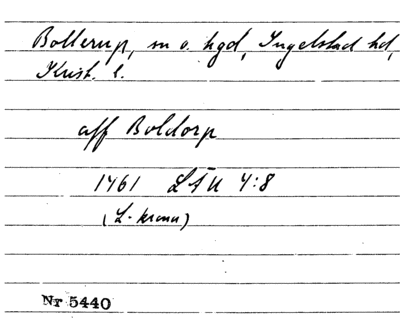 Bollerup, sn o. hgd, Ingelstad hd,
Krist. l.
aff Boldorp
1461 LÄU 4:8
(L. krona)
Nr 5440